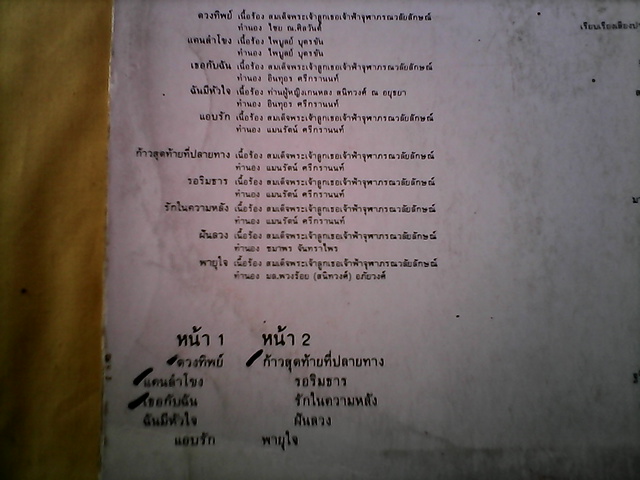 ดวงทิพย์ เนื้อร้อง สมเด็จพระเจ้าลูกเธอเจ้าฟ้าจุฬาภรณวลัยลักษณ์
ทำนอง ไชย ณ.ศิลวันต์
แคนลำโขง เนื้อร้อง ไพบูลย์ บุตรขัน
ทำนอง ไพบูลย์ บุตรขัน
เธอกับฉัน เนื้อร้อง สมเด็จพระเจ้าลูกเธอเจ้าฟ้าจุฬาภรณวลัยลักษณ์
ทำนอง อินทุอร ศรีกรานนท์
ฉันมีหัวใจ เนื้อร้อง ท่านผู้หญิงเกนหลง สนิทวงศ์ ณ อยุธยา
ทำนอง อินทุอร ศรีกรานนท์
แอบรัก เนื้อร้อง สมเด็จพระเจ้าลูกเธอเจ้าฟ้าจุฬาภรณวลัยลักษณ์
ทำนอง แมนรัตน์ ศรีกรานนท์
ก้าวสุดท้ายที่ปลายทาง เนื้อร้อง สมเด็จพระเจ้าลูกเธอเจ้าฟ้าจุฬาภรณวลัยลักษณ์
ทำนอง แมนรัตน์ ศรีกรานนท์
รอริมธาร เนื้อร้อง สมเด็จพระเจ้าลูกเธอเจ้าฟ้าจุฬาภรณวลัยลักษณ์
ทำนอง แมนรัตน์ ศรีกรานนท์
รักในความหลัง เนื้อร้อง สมเด็จพระเจ้าลูกเธอเจ้าฟ้าจุฬาภรณวลัยลักษณ์
ทำนอง แมนรัตน์ ศรีกรานนท์
ฝันลวง เนื้อร้อง สมเด็จพระเจ้าลูกเธอเจ้าฟ้าจุฬาภรณวลัยลักษณ์
ทำนอง ชมาพร จันทราไพร
พายุใจ เนื้อร้อง สมเด็จพระเจ้าลูกเธอเจ้าฟ้าจุฬาภรณวลัยลักษณ์
ทำนอง มล.พวงร้อย (สนิทวงศ์) อภัยวงศ์
หน้า 1 หน้า 2
ดวงทิพย์ ก้าวสุดท้ายที่ปลายทาง
แคนลำโขง รอริมธาร
เธอกับฉัน รักในความหลัง
ฉันมีหัวใจ ฝันลวง
แอบรัก พายุใจ